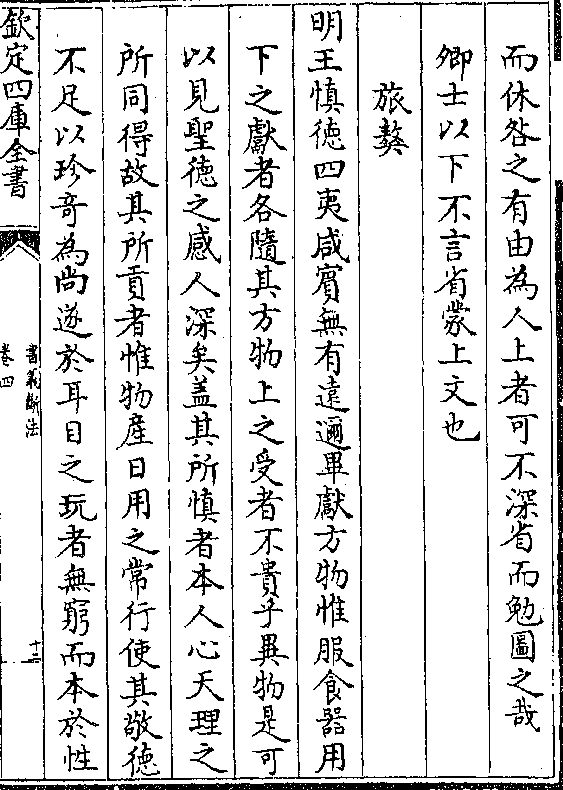 而休咎之有由為人上者可不深省而勉圖之哉
卿士以下不言省蒙上文也
旅獒
明王慎徳四夷咸賓無有遠邇畢獻方物惟服食器用
下之獻者各隨其方物上之受者不貴乎異物是可
以見聖徳之感人深矣盖其所慎者本人心天理之
所同得故其所貢者惟物產日用之常行使其敬徳
不足以珍奇為尚遂於耳目之玩者無窮而本於性
欽定四庫全書
書義斷法
卷四
十二